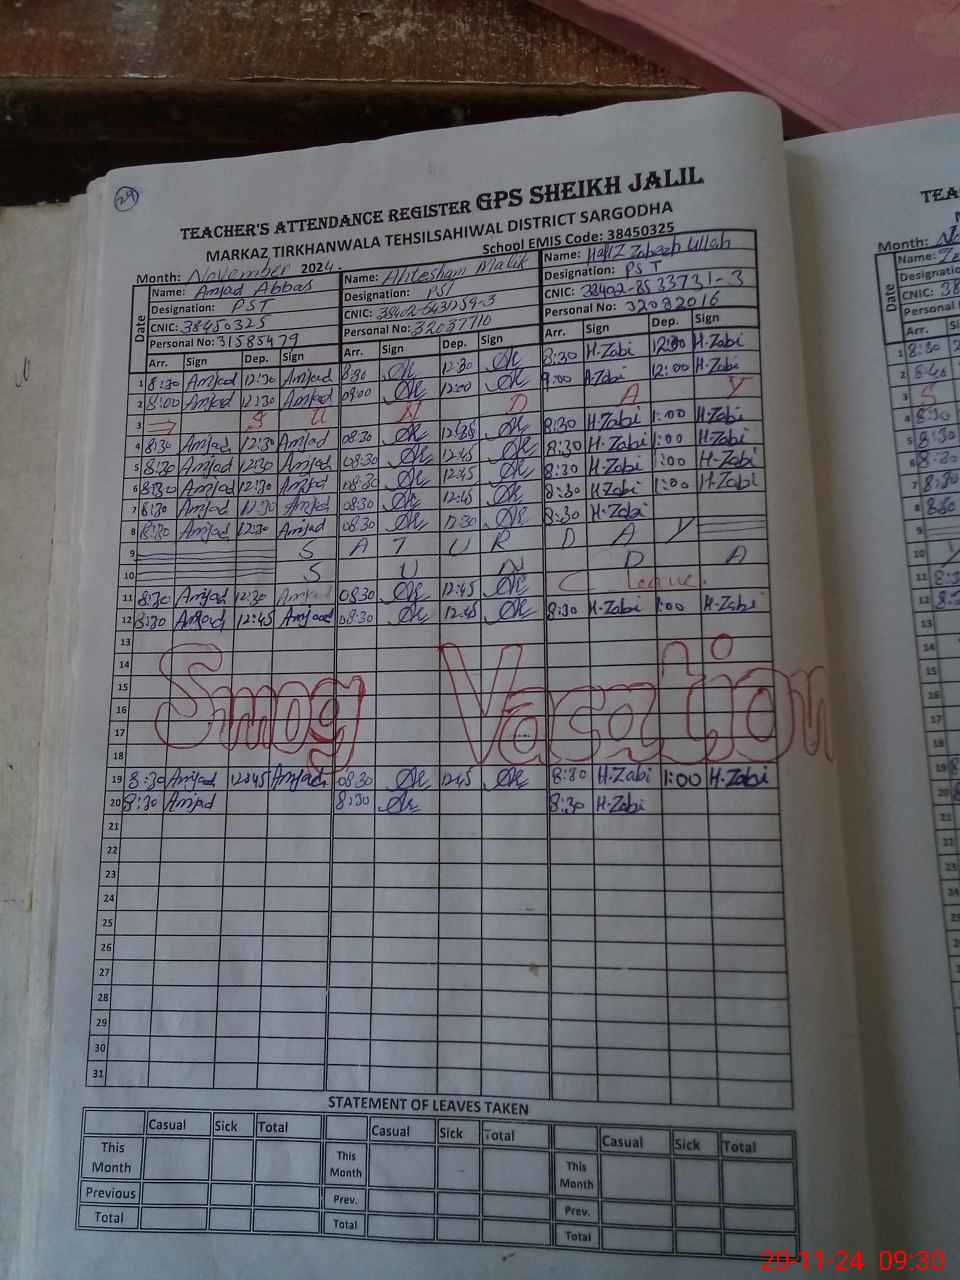 24
TEACHER'S ATTENDANCE REGISTER GPS SHEIKH JALIL
MARKAZ TIRKHANWALA TEHSILSAHIWAL DISTRICT SARGODHA
School EMIS Code: 38450325
Month: November 2024.
Date
Name: Amjad Abbas Name: Ahtesham Malik Name: Hafiz Zabeeh Ullah
Designation: PST Designation: PST Designation: PST
CNIC: 38450325 CNIC: CNIC: 38402-8533731-3
Personal No: 31585479 Personal No: 32037710 Personal No: 32032016
Arr. Sign Dep. Sign Arr. Sign Dep. Sign Arr. Sign Dep. Sign
1 8:30 Amjad 12:30 Amjad 8:30 12:30 8:30 H.Zabi 12:30 H.Zabi
2 8:00 Amjad 12:30 Amjad 09:00 12:00 9:00 H.Zabi 12:00 H.Zabi
3 S U N D A Y
4 8:30 Amjad 12:30 Amjad 08:30 8:30 H.Zabi 1:00 H.Zabi
5 8:30 Amjad 12:30 Amjad 08:30 12:45 8:30 H.Zabi 1:00 H.Zabi
6 8:30 Amjad 12:30 Amjad 08:30 12:45 8:30 H.Zabi 1:00 H.Zabi
7 8:30 Amjad 12:30 Amjad 08:30 12:45 8:30 H.Zabi 1:00 H.Zabi
8 8:30 Amjad 12:30 Amjad 08:30 12:30 8:30 H.Zabi
9 S A T U R D A Y
10 S U N D A
11 8:30 Amjad 12:30 Amjad 08:30 12:45 C leave.
12 8:30 Amjad 12:45 Amjad 08:30 12:45 8:30 H.Zabi 1:00 H.Zabi
13
14
15
16 Smog Vacation
17
18
19 8:30 Amjad 12:45 Amjad 08:30 12:45 8:30 H.Zabi 1:00 H.Zabi
20 8:30 Amjad 8:30 8:30 H.Zabi
21
22
23
24
25
26
27
28
29
30
31
STATEMENT OF LEAVES TAKEN
Casual Sick Total Casual Sick Total Casual Sick Total
This Month This Month This Month
Previous Prev. Prev.
Total Total Total
TEA
Month:
Date
Name:
Designation
CNIC:
Personal
Arr.
1 8:30
2 8:40
3 S
4 8:30
5 8:30
6 8:30
7 8:30
8
9
10
11
12
13
14
15
16
17
18
19
20
21
22
23
24
25
26
27
28
29
30
31
20-11-24 09:30